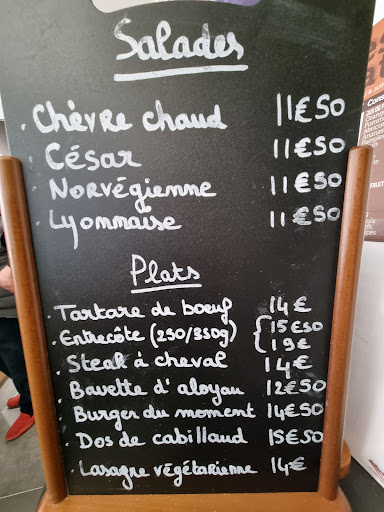 Salades
. Chèvre chaud 11€50
. César 11€50
. Norvégienne 11€50
. Lyonnaise 11€50
Plats
. Tartare de boeuf 14€
. Entrecôte (250/350g) { 15€50
19€
. Steak à cheval 14€
. Bavette d'aloyau 12€50
. Burger du moment 14€50
. Dos de cabillaud 15€50
. Lasagne végétarienne 14€